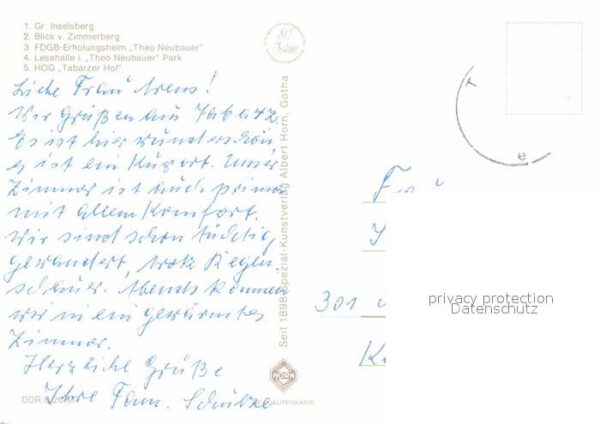 1. Gr. Inselsberg
2. Blick v. Zimmerberg
3. FDGB-Erholungsheim „Theo Neubauer"
4. Lesehalle i. „Theo Neubauer" Park
5. HOG „Tabarzer Hof"
80 Jahre
Liebe Frau Arens!
Wir Grüßen aus Tabarz.
Es ist hier wunderschön,
es ist ein Kurort. Unser
Zimmer ist auch prima
mit allem Komfort.
Wir sind schon tüchtig
gewandert, trotz Regen
schauer. Abends kommen
wir in ein gewärmtes
Zimmer.
Herzliche Grüße
Ihre Fam. Schulze
DDR
Seit 1898 Spezial-Kunstverlag Albert Horn, Gotha
HORN
QUALITÄTSKARTE
301
privacy protection
Datenschutz